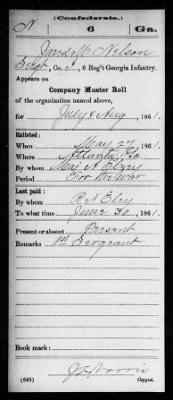 (Confederate.)
N 6 Ga.
Nelson
Sergt, Co. , 6 Reg't Georgia Infantry.
Appears on
Company Muster Roll
of the organization named above,
for July & Aug , 1861.
Enlisted:
When May 27 , 1861.
Where Atlanta, Ga
By whom Maj
Period For the War
Last paid:
By whom
To what time June 30 , 1861.
Present or absent Present
Remarks 1st Sergeant
Book mark:
(642) Copyist.